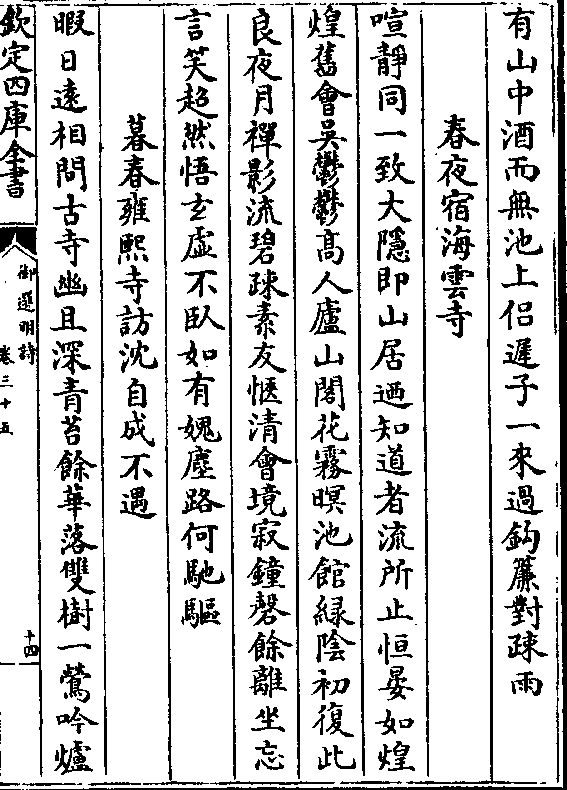 有山中酒而無池上侣遲子一來過鈎簾對疎雨
春夜宿海雲寺
喧靜同一致大隱即山居迺知道者流所止恒晏如煌
煌舊會吳鬱鬱高人廬山閣花霧暝池館緑陰初復此
良夜月禪影流碧疎素友愜清會境寂鐘磬餘離坐忘
言笑超然悟玄虛不卧如有媿塵路何馳驅
暮春雍熙寺訪沈自成不遇
暇日遠相問古寺幽且深青苔餘華落雙樹一鶯吟爐
欽定四庫全書
御選明詩
卷三十五
十四